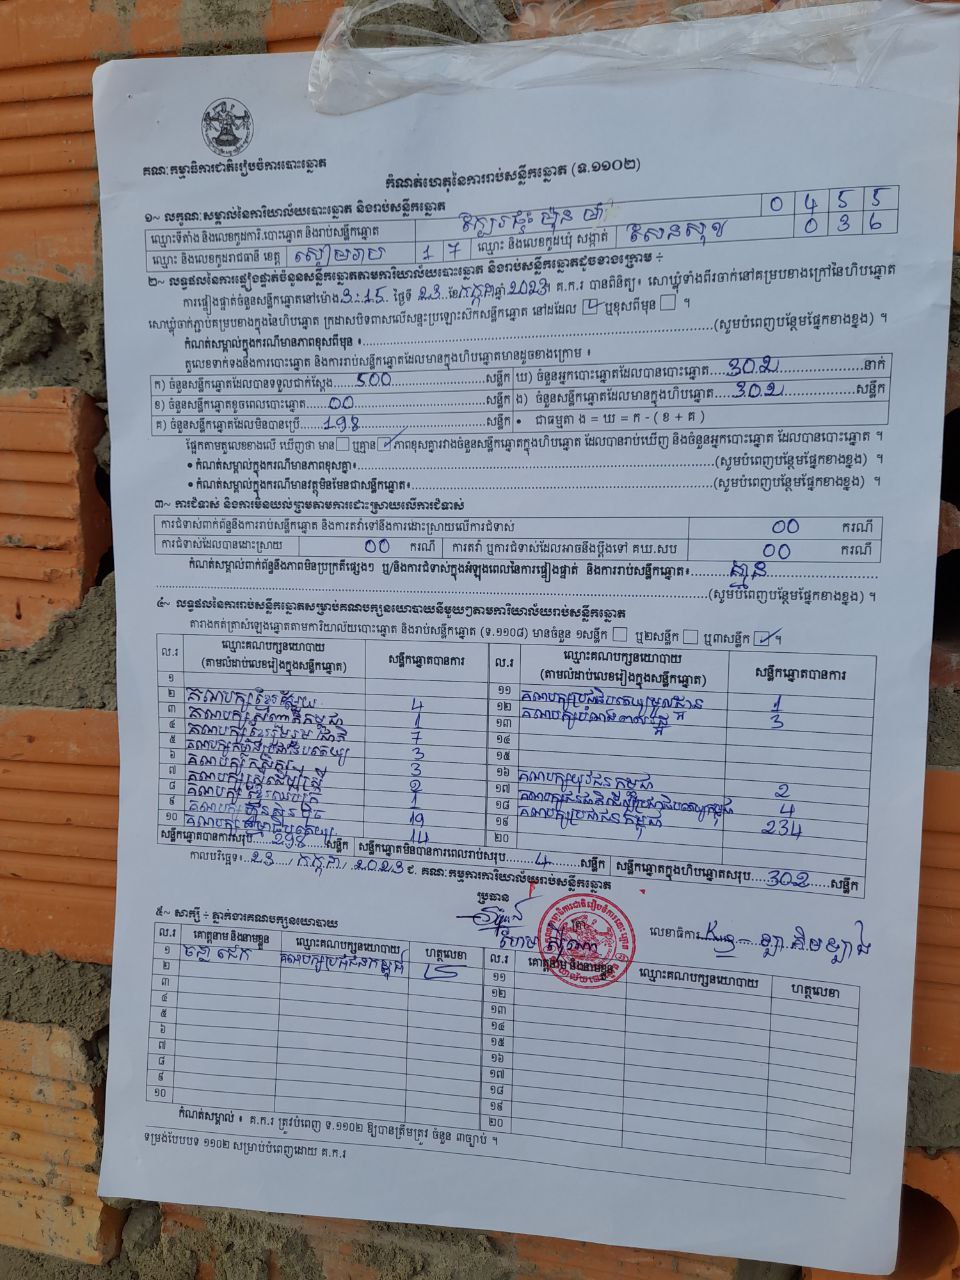 គណៈកម្មាធិការជាតិរៀបចំការបោះឆ្នោត
កំណត់ហេតុនៃការរាប់សន្លឹកឆ្នោត (ទ.១១០២)
១~ លក្ខណៈសម្គាល់នៃការិយាល័យបោះឆ្នោត និងរាប់សន្លឹកឆ្នោត
ឈ្មោះទីតាំង និងលេខកូដការិ.បោះឆ្នោត និងរាប់សន្លឹកឆ្នោត 0 4 5 5
ឈ្មោះ និងលេខកូដរាជធានី ខេត្ត សៀមរាប 1 7 ឈ្មោះ និងលេខកូដឃុំ សង្កាត់ សែនសុខ 0 3 6
២~ លទ្ធផលនៃការផ្ទៀងផ្ទាត់ចំនួនសន្លឹកឆ្នោតតាមការិយាល័យបោះឆ្នោត និងរាប់សន្លឹកឆ្នោតដូចខាងក្រោម ÷
ការផ្ទៀងផ្ទាត់ចំនួនសន្លឹកឆ្នោតនៅម៉ោង 3:15 ថ្ងៃទី 23 ខែ កក្កដា ឆ្នាំ 2023។ គ.ក.រ បានពិនិត្យ៖ សោឃ្លុំទាំងពីរចាក់នៅគម្របខាងក្រៅនៃហិបឆ្នោត
សោឃ្លុំចាក់ភ្ជាប់គម្របខាងក្នុងនៃហិបឆ្នោត ក្រដាសបិទពាសលើសន្ទះប្រឡោះសៀតសន្លឹកឆ្នោត នៅដដែល ឬខុសពីមុន ។
កំណត់សម្គាល់ក្នុងករណីមានភាពខុសពីមុន ៖ (សូមបំពេញបន្ថែមផ្នែកខាងខ្នង) ។
តួលេខទាក់ទងនឹងការបោះឆ្នោត និងការរាប់សន្លឹកឆ្នោតដែលមានក្នុងហិបឆ្នោតមានដូចខាងក្រោម ៖
ក) ចំនួនសន្លឹកឆ្នោតដែលបានទទួលជាក់ស្តែង 500 សន្លឹក ឃ) ចំនួនអ្នកបោះឆ្នោតដែលបានបោះឆ្នោត 302 នាក់
ខ) ចំនួនសន្លឹកឆ្នោតខូចពេលបោះឆ្នោត 00 សន្លឹក ង) ចំនួនសន្លឹកឆ្នោតដែលមានក្នុងហិបឆ្នោត 302 សន្លឹក
គ) ចំនួនសន្លឹកឆ្នោតដែលមិនបានប្រើ 198 សន្លឹក • ជាធម្មតា ង = ឃ = ក - ( ខ + គ )
ផ្អែកតាមតួលេខខាងលើ ឃើញថា មាន ឬគ្មាន ភាពខុសគ្នារវាងចំនួនសន្លឹកឆ្នោតក្នុងហិបឆ្នោត ដែលបានរាប់ឃើញ និងចំនួនអ្នកបោះឆ្នោត ដែលបានបោះឆ្នោត ។
• កំណត់សម្គាល់ក្នុងករណីមានភាពខុសគ្នា៖ (សូមបំពេញបន្ថែមផ្នែកខាងខ្នង) ។
• កំណត់សម្គាល់ក្នុងករណីមានវត្ថុមិនមែនជាសន្លឹកឆ្នោត៖ (សូមបំពេញបន្ថែមផ្នែកខាងខ្នង) ។
៣~ ការជំទាស់ និងការមិនយល់ព្រមតាមការដោះស្រាយលើការជំទាស់
ការជំទាស់ពាក់ព័ន្ធនឹងការរាប់សន្លឹកឆ្នោត និងការតវ៉ាទៅនឹងការដោះស្រាយលើការជំទាស់ 00 ករណី
ការជំទាស់ដែលបានដោះស្រាយ 00 ករណី ការតវ៉ា ឬការជំទាស់ដែលអាចនឹងប្តឹងទៅ គឃ.សប 00 ករណី
កំណត់សម្គាល់ពាក់ព័ន្ធនឹងភាពមិនប្រក្រតីផ្សេងៗ ឬ/និងការជំទាស់ក្នុងអំឡុងពេលនៃការផ្ទៀងផ្ទាត់ និងការរាប់សន្លឹកឆ្នោត៖ គ្មាន
(សូមបំពេញបន្ថែមផ្នែកខាងខ្នង) ។
៤~ លទ្ធផលនៃការរាប់សន្លឹកឆ្នោតសម្រាប់គណបក្សនយោបាយនីមួយៗតាមការិយាល័យរាប់សន្លឹកឆ្នោត
តារាងកត់ត្រាសំឡេងឆ្នោតតាមការិយាល័យបោះឆ្នោត និងរាប់សន្លឹកឆ្នោត (ទ.១១០៨) មានចំនួន ១សន្លឹក ឬ២សន្លឹក ឬ៣សន្លឹក ។
ល.រ ឈ្មោះគណបក្សនយោបាយ (តាមលំដាប់លេខរៀងក្នុងសន្លឹកឆ្នោត) សន្លឹកឆ្នោតបានការ ល.រ ឈ្មោះគណបក្សនយោបាយ (តាមលំដាប់លេខរៀងក្នុងសន្លឹកឆ្នោត) សន្លឹកឆ្នោតបានការ
១ ១១ 1
២ 4 ១២ 3
៣ 1 ១៣
៤ 7 ១៤
៥ 3 ១៥
៦ 3 ១៦ គណបក្សយុវជនកម្ពុជា 2
៧ 2 ១៧ 4
៨ 1 ១៨ គណបក្សប្រជាជនកម្ពុជា 234
៩ 19 ១៩
១០ 14 ២០
សន្លឹកឆ្នោតបានការសរុប 298 សន្លឹក សន្លឹកឆ្នោតមិនបានការពេលរាប់សរុប 4 សន្លឹក សន្លឹកឆ្នោតក្នុងហិបឆ្នោតសរុប 302 សន្លឹក
កាលបរិច្ឆេទ៖ 23 / កក្កដា / 2023 ជ. គណៈកម្មការការិយាល័យរាប់សន្លឹកឆ្នោត
ប្រធាន
លេខាធិការ
៥~ សាក្សី ÷ ភ្នាក់ងារគណបក្សនយោបាយ
ល.រ គោត្តនាម និងនាមខ្លួន ឈ្មោះគណបក្សនយោបាយ ហត្ថលេខា ល.រ គោត្តនាម និងនាមខ្លួន ឈ្មោះគណបក្សនយោបាយ ហត្ថលេខា
១ គណបក្សប្រជាជនកម្ពុជា ១១
២ ១២
៣ ១៣
៤ ១៤
៥ ១៥
៦ ១៦
៧ ១៧
៨ ១៨
៩ ១៩
១០ ២០
កំណត់សម្គាល់ ៖ គ.ក.រ ត្រូវបំពេញ ទ.១១០២ ឱ្យបានត្រឹមត្រូវ ចំនួន ៣ច្បាប់ ។
ទម្រង់បែបបទ ១១០២ សម្រាប់បំពេញដោយ គ.ក.រ